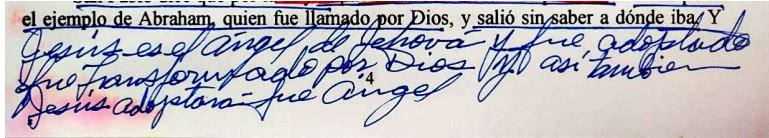 el ejemplo de Abraham, quien fue llamado por Dios, y salió sin saber a dónde iba. Y
Jesús es el ángel de Jehová y fue adoptado
fue transformado por Dios y así tambien
4
Jesús adoptará fue ángel